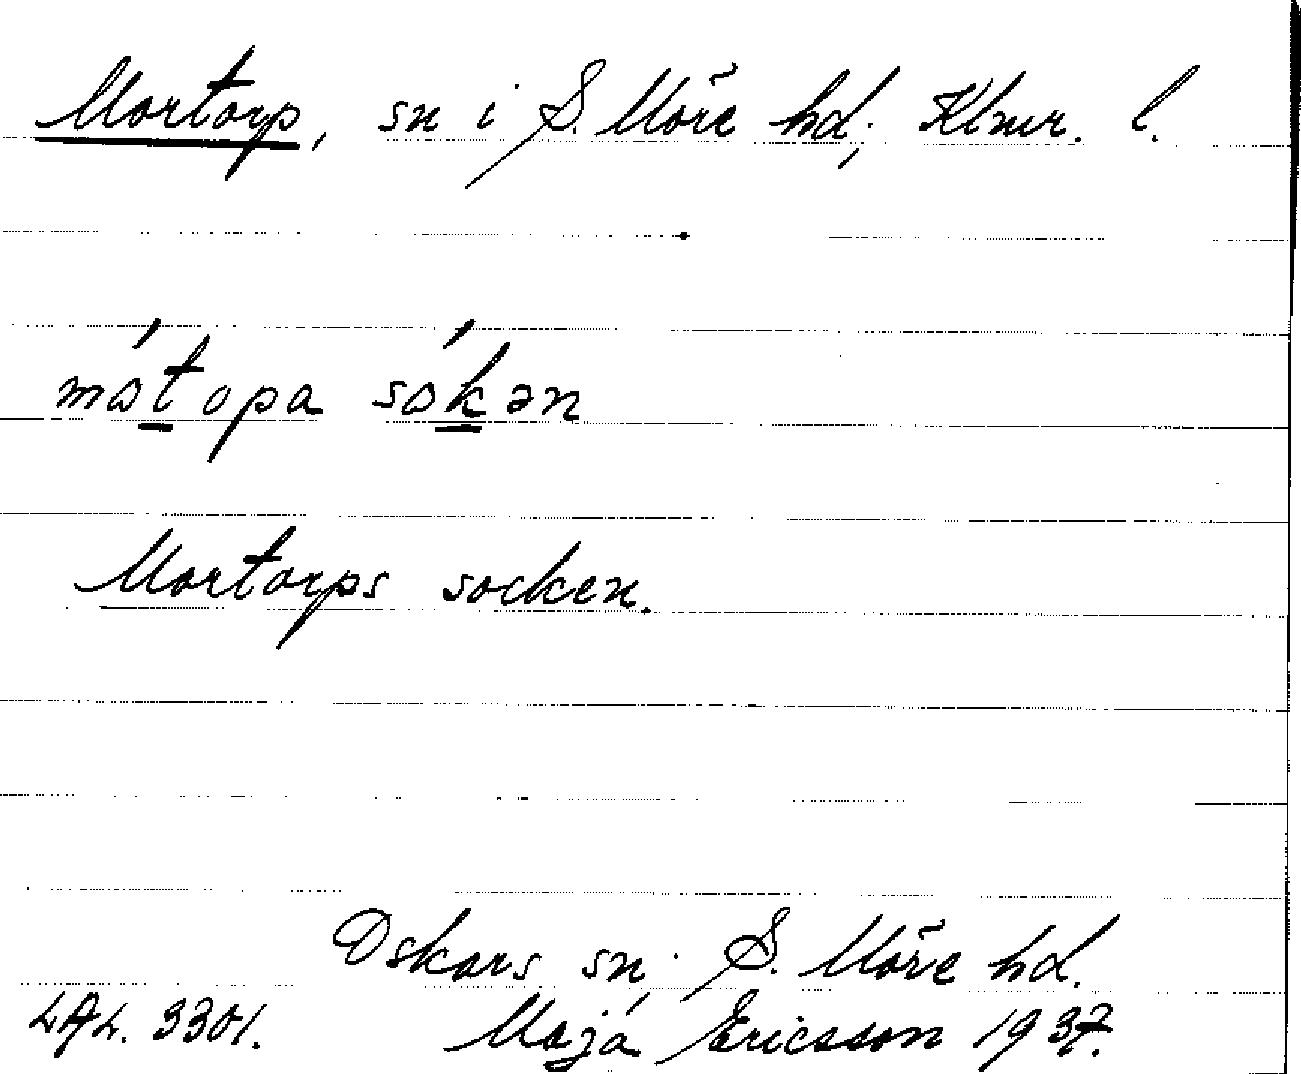 Mortorp, sn i S. Möre hd; Klmr. l.
mót̲opa sók̲ən
Mortorps socken.
Oskars sn; S. Möre hd.
LAL. 3301. Maja Ericsson 1937.